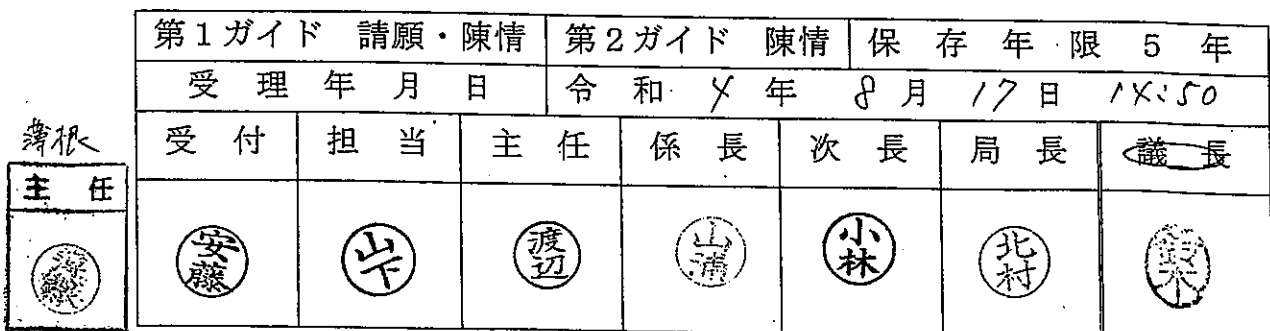 第1ガイド 請願・陳情 第2ガイド 陳情 保存年限5年
受理年月日 令和4年 8月 17日 14:50
受付 担当 主任 係長 次長 局長 議長
主任
安藤 山下 渡辺 山浦 小林 北村 鈴木